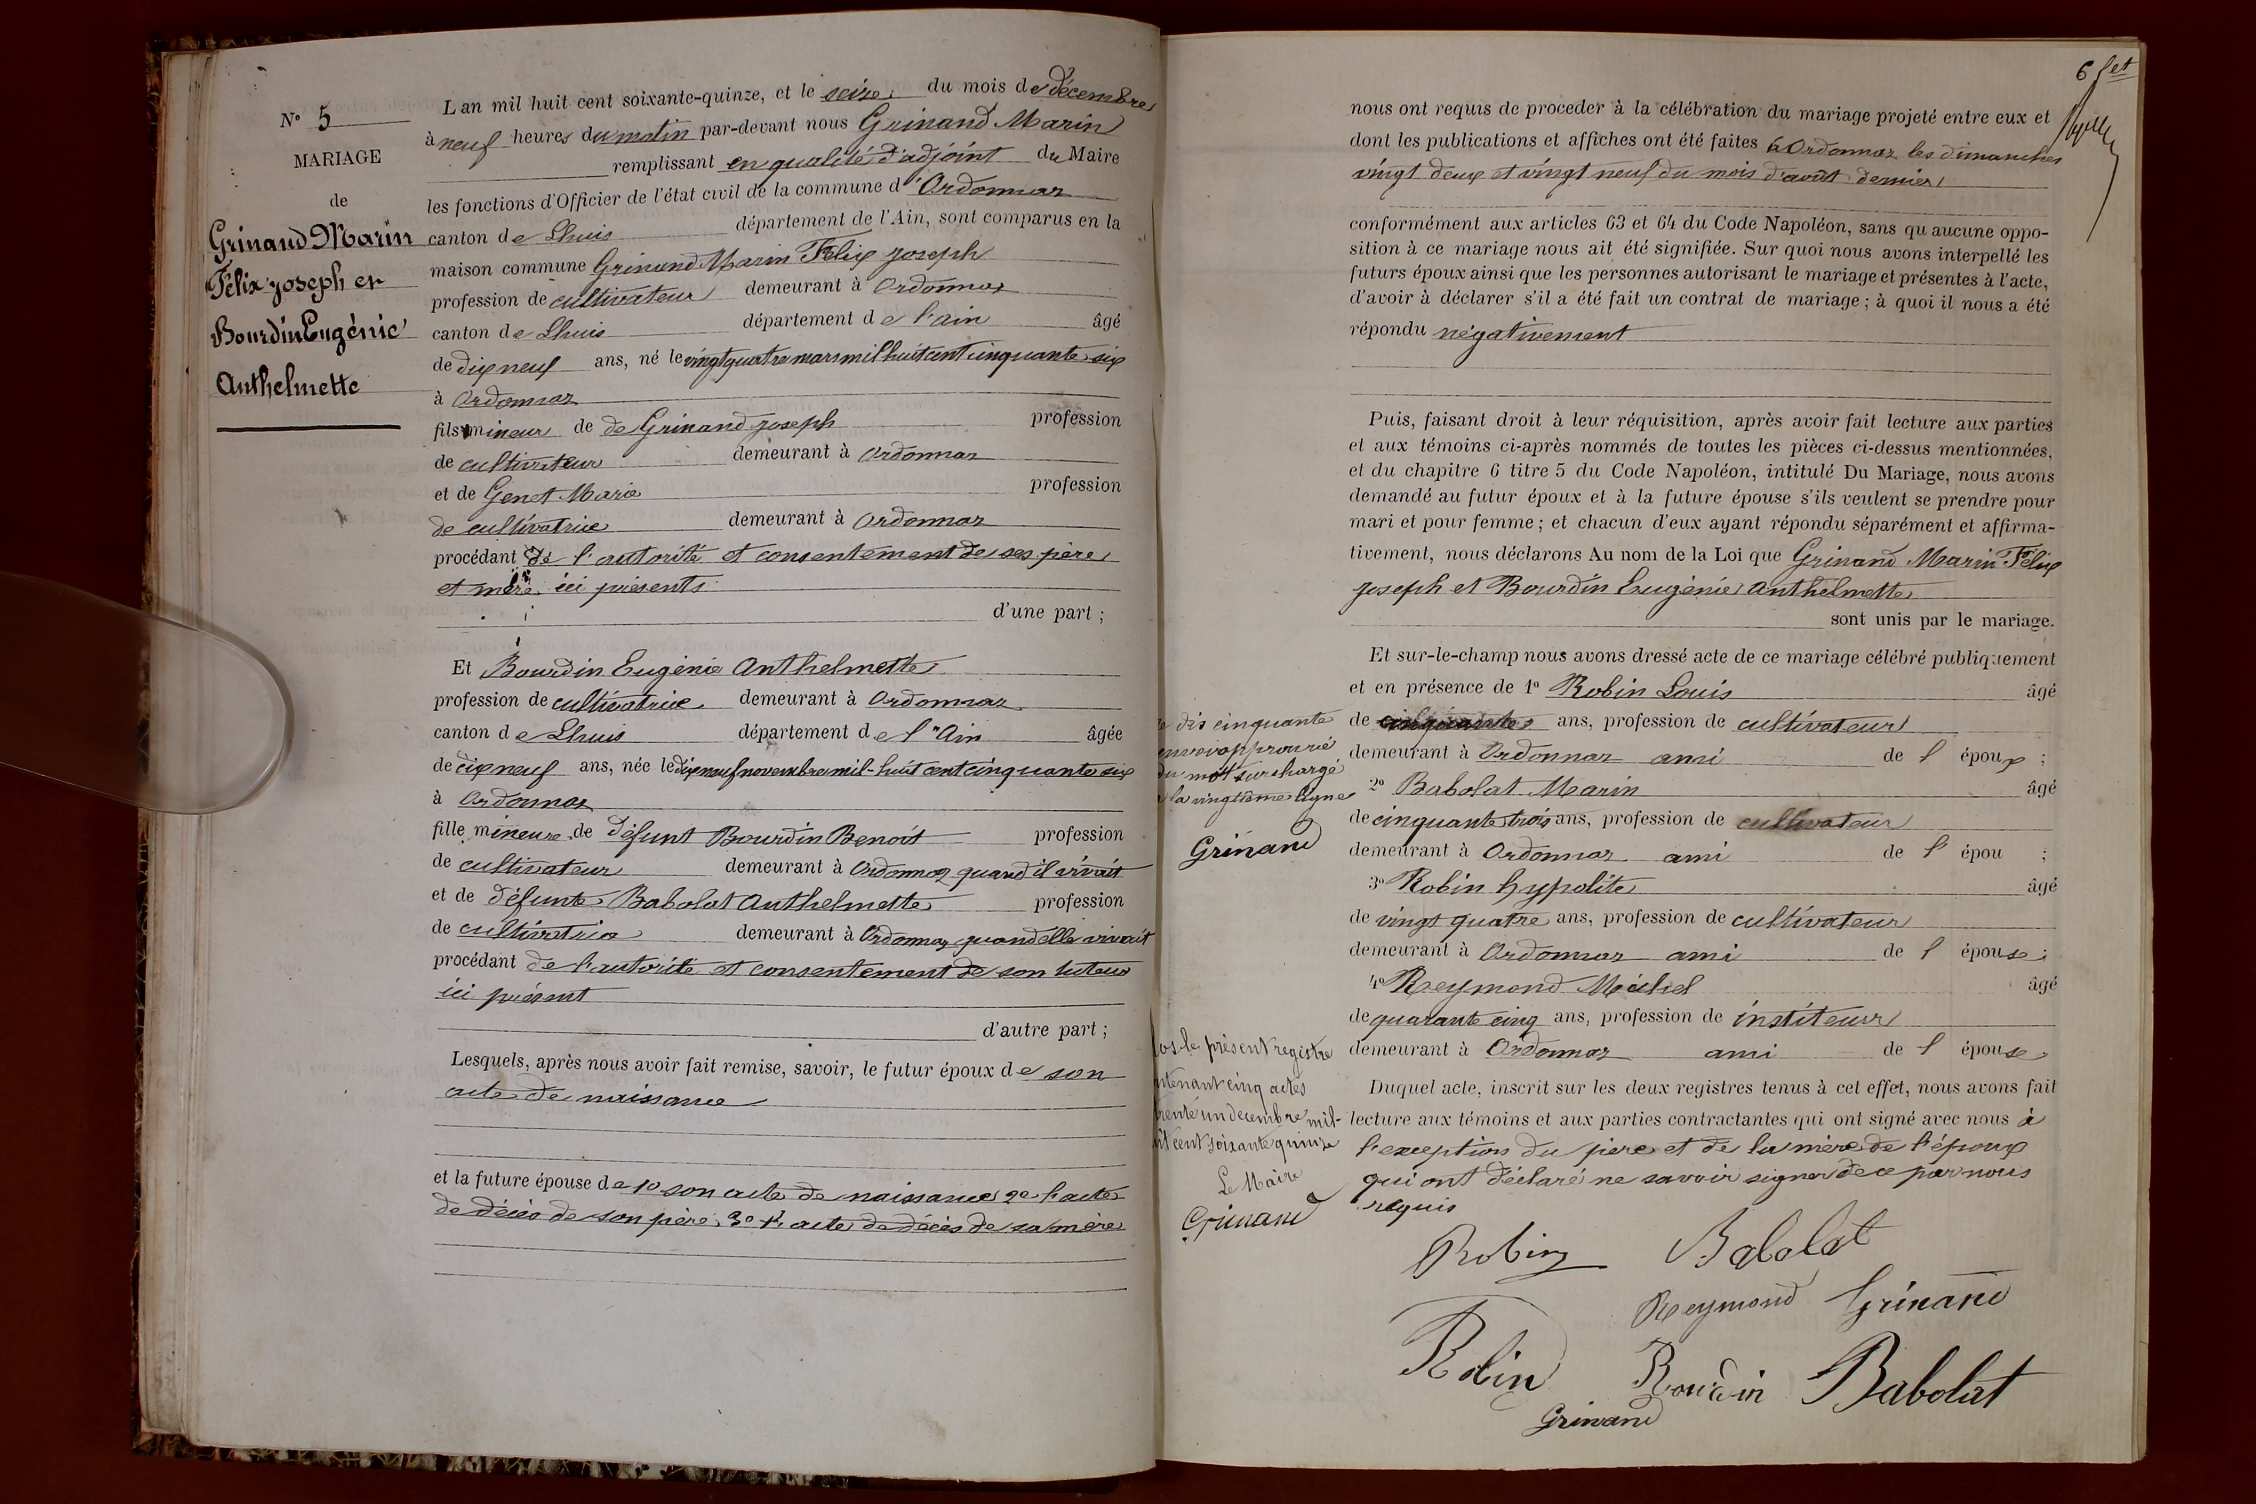 N° 5
MARIAGE
de
Grinand Marin
Félix joseph et
Bourdin Eugénie
Anthelmette
L'an mil huit cent soixante-quinze, et le seize du mois de décembre
à neuf heures du matin par-devant nous Grinand Marin
remplissant en qualité d'adjoint du Maire
les fonctions d'Officier de l'état civil de la commune d'Ordonnaz
canton de Lhuis département de l'Ain, sont comparus en la
maison commune Grinand Marin Félix joseph
profession de cultivateur demeurant à Ordonnaz
canton de Lhuis département de l'ain âgé
de dix neuf ans, né le vingt quatre mars mil huit cent cinquante six
à Ordonnaz
fils mineur de de Grinand joseph profession
de cultivateur demeurant à Ordonnaz
et de Genet Marie profession
de cultivatrice demeurant à Ordonnaz
procédant de l'autorité et consentement de ses père
et mère ici présents
d'une part ;
Et Bourdin Eugénie Anthelmette
profession de cultivatrice demeurant à Ordonnaz
canton de Lhuis département de l'Ain âgée
de dix neuf ans, née le dix neuf novembre mil-huit cent cinquante six
à Ordonnaz
fille mineure de défunt Bourdin Benoit profession
de cultivateur demeurant à Ordonnaz quand il vivait
et de défunte Babolat Anthelmette profession
de cultivatrice demeurant à Ordonnaz quand elle vivait
procédant de l'autorité et consentement de son tuteur
ici présent
d'autre part ;
Lesquels, après nous avoir fait remise, savoir, le futur époux de son
acte de naissance
et la future épouse de 1° son acte de naissance 2° l'acte
de décès de son père, 3° l'acte de décès de sa mère
6
nous ont requis de procéder à la célébration du mariage projeté entre eux et
dont les publications et affiches ont été faites à Ordonnaz les dimanches
vingt deux et vingt neuf du mois d'août dernier
conformément aux articles 63 et 64 du Code Napoléon, sans qu'aucune oppo-
sition à ce mariage nous ait été signifiée. Sur quoi nous avons interpellé les
futurs époux ainsi que les personnes autorisant le mariage et présentes à l'acte,
d'avoir à déclarer s'il a été fait un contrat de mariage ; à quoi il nous a été
répondu négativement
Puis, faisant droit à leur réquisition, après avoir fait lecture aux parties
et aux témoins ci-après nommés de toutes les pièces ci-dessus mentionnées,
et du chapitre 6 titre 5 du Code Napoléon, intitulé Du Mariage, nous avons
demandé au futur époux et à la future épouse s'ils veulent se prendre pour
mari et pour femme ; et chacun d'eux ayant répondu séparément et affirma-
tivement, nous déclarons Au nom de la Loi que Grinand Marin Félix
joseph et Bourdin Eugénie Anthelmette
sont unis par le mariage.
Et sur-le-champ nous avons dressé acte de ce mariage célébré publiquement
et en présence de 1° Robin Louis âgé
de cinquante ans, profession de cultivateur
demeurant à Ordonnaz ami de l'époux ;
2° Babolat Marin âgé
de cinquante trois ans, profession de cultivateur
demeurant à Ordonnaz ami de l'épou ;
3° Robin hypolite âgé
de vingt quatre ans, profession de cultivateur
demeurant à Ordonnaz ami de l'épouse ;
4° Reymond Michel âgé
de quarante cinq ans, profession de instituteur
demeurant à Ordonnaz ami de l'épouse
Duquel acte, inscrit sur les deux registres tenus à cet effet, nous avons fait
lecture aux témoins et aux parties contractantes qui ont signé avec nous à
l'exception du père et de la mère de l'époux
qui ont déclaré ne savoir signer de ce par nous
requis
dis cinquante
du mot surchargé
la vingtième ligne
Grinand
le présent registre
cinq actes
trente un décembre mil-
cent soixante quinze
Le Maire
Grinand
Robin Babolat
Reymond Grinand
Robin Bourdin Babolat
Grinand